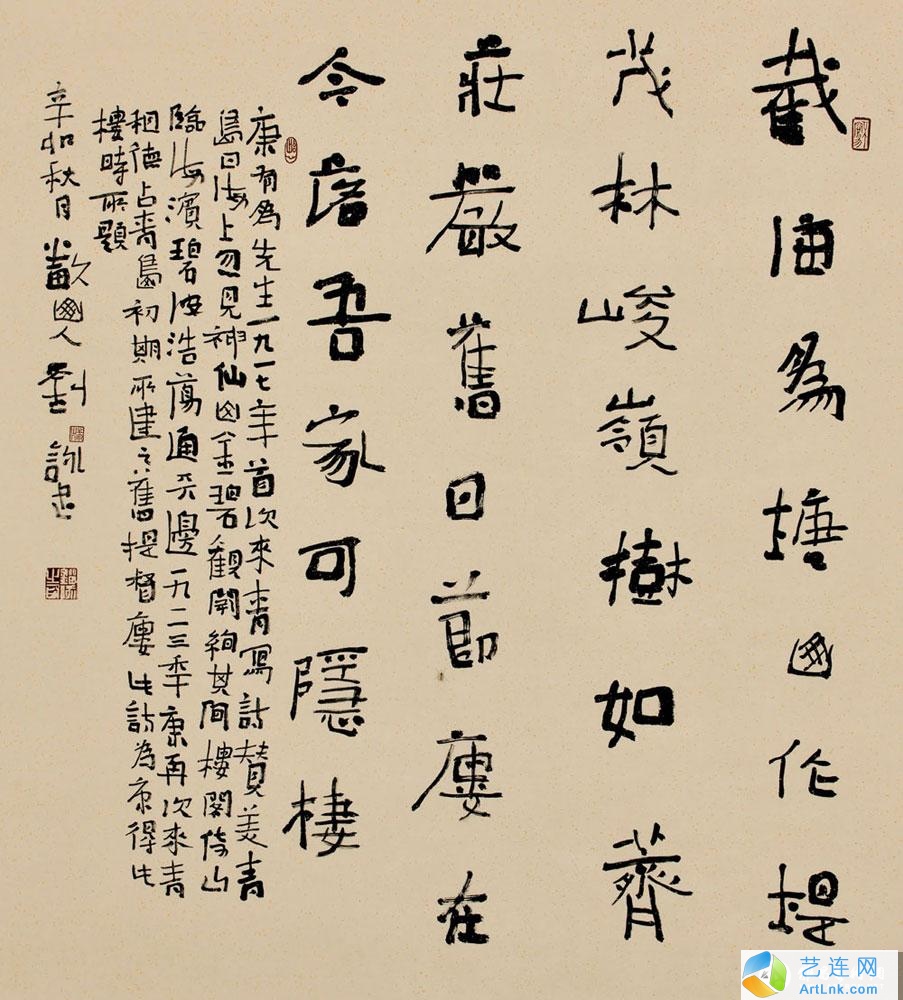 截海為塘山作堤
茂林峻嶺樹如薺
莊嚴舊日節廔在
今落吾家可隱棲
康有為先生一九一七年首次來青寫詩贊美青
島曰海上忽見神仙山金碧觀闕絢其間樓閣倚山
臨海濱碧波浩蕩通天邊一九二三年康再次來青
租德占青島初期所建之舊提督廔此詩為康得此
樓時所題
辛卯秋月 山人劉詠
艺连网
ArtLnk.com